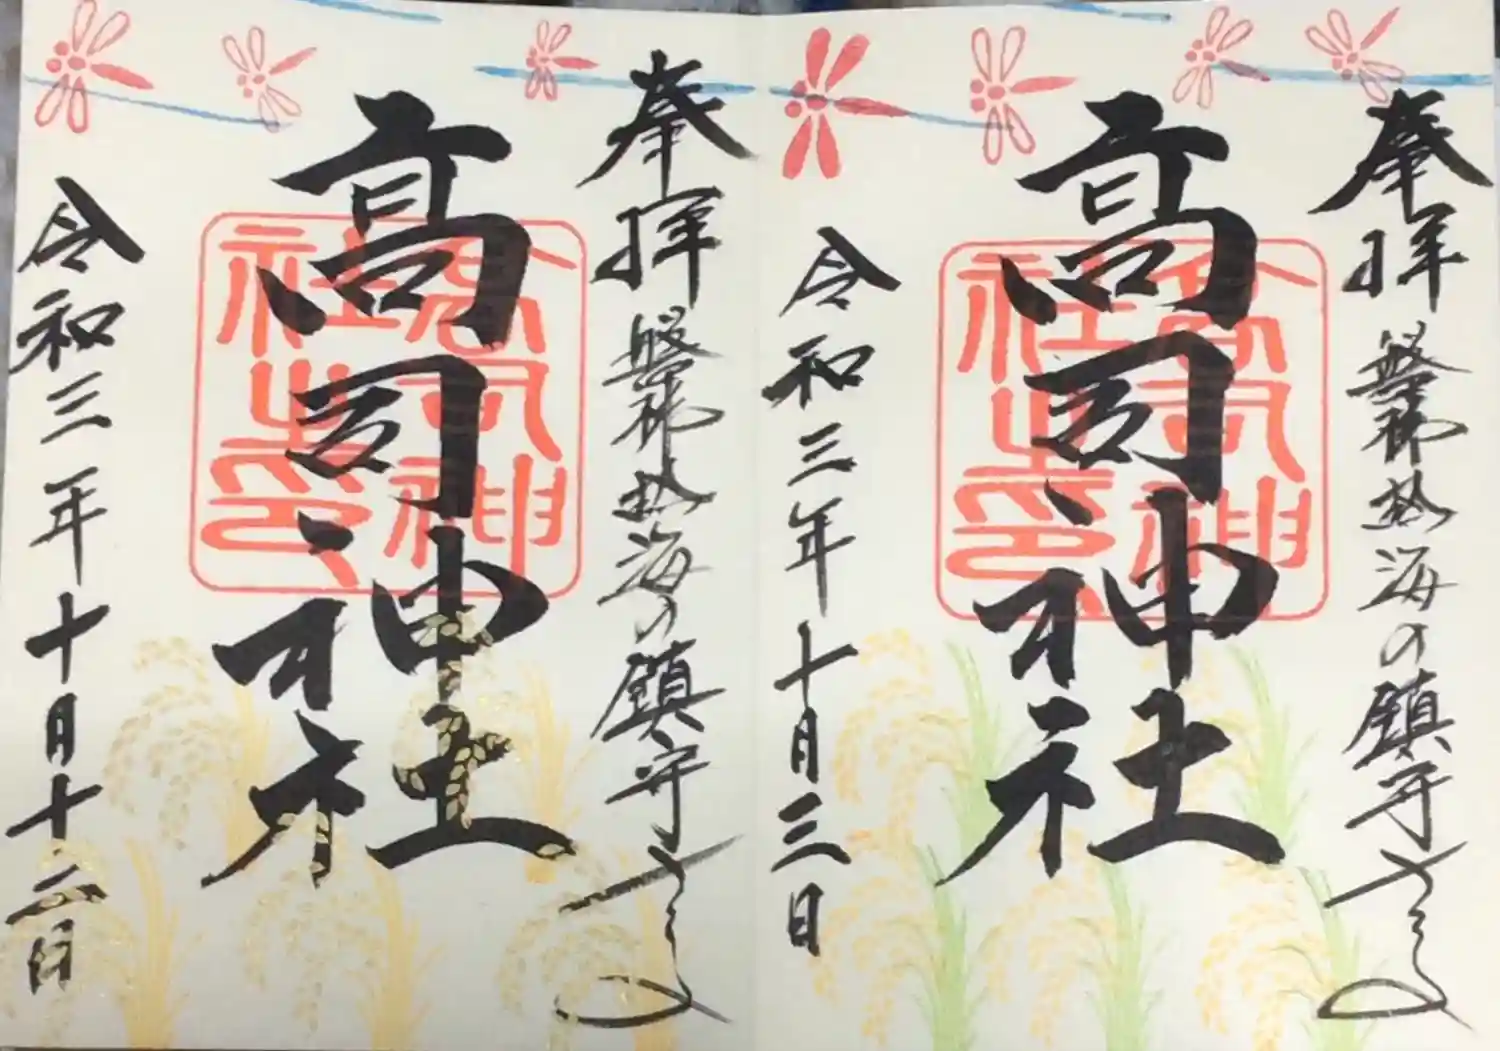 奉拝 磐梯熱海の鎮守
高司神社
高司神社之印
令和三年十月三日
奉拝 磐梯熱海の鎮守
高司神社
高司神社之印
令和三年十月十二日